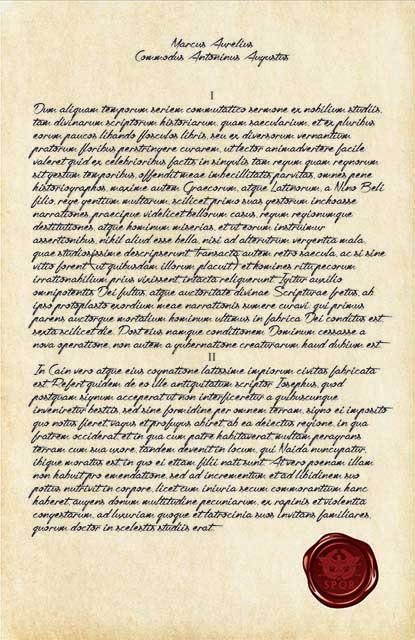 Marcus Aurelius
Commodus Antoninus Augustus
I
Dum aliquam temporum seriem commutatico sermone, ex nobilium studiis,
tam divinarum scriptorum historiarum, quam saecularium, et ex pluribus
eorum paucos libando flosculos libris, seu ex diversorum vernantium
pratorum floribus perstringere curarem, ut lector animadvertere facile
valeret quid ex celebrioribus factis in singulis tam regum quam regnorum
sit gestum temporibus, offendit meae imbecillitatis parvitas, omnes pene
historiographos, maxime autem Graecorum, atque Latinorum, a Nino Beli
filio, rege gentium multarum, scilicet primo suas gestorum inchoasse
narrationes, praecipue videlicet bellorum casus, regum regionumque
destitutiones, atque hominum miserias, et ut eorum instruimur
assertionibus, nihil aliud esse bella, nisi ad alterutrum vergentia mala,
quae studiosissime descripserunt. Transacta autem retro saecula, ac si sine
vitio forent (ut quibusdam illorum placuit) et homines ritu pecorum
irrationabilium prius vixissent intacta reliquerunt. Igitur auxilio
omnipotentis Dei fultus, atque auctoritate divinae Scripturae fretus, ab
ipso protoplasto exordium meae narrationis sumere curavi, qui primus
parens auctorque mortalium hominum ultimus in fabrica Dei conditus est,
sexta scilicet die. Post eius namque conditionem Dominum cessasse a
nova operatione, non autem a gubernatione creaturarum haud dubium est.
II
In Cain vero atque eius cognatione latissime impiorum civitas fabricata
est. Refert quidem de eo ille antiquitatum scriptor Iosephus, quod
postquam signum acceperat ut non interficeretur a quibuscunque
inveniretur bestiis, sed sine formidine per omnem terram, signo ei imposito
quo notus fieret vagus et profugus abiret ab ea deiectus regione, in qua
fratrem occiderat, et in qua cum patre habitaverat, multam peragrans
terram cum sua uxore, tandem devenit in locum, qui Naida nuncupatur,
ibique moratus est in quo ei etiam filii nati sunt. At vero poenam illam
non habuit pro emendatione, sed ad incrementum, et ad libidinem suo
potius nutrivit in corpore, licet cum iniuria secum commorantium hanc
haberet, augens domum multitudine pecuniarum, ex rapinis et violentia
congestarum, ad luxuriam quoque et latrocinia suos invitans familiares,
quorum doctor in scelestis studiis erat.
SPQR